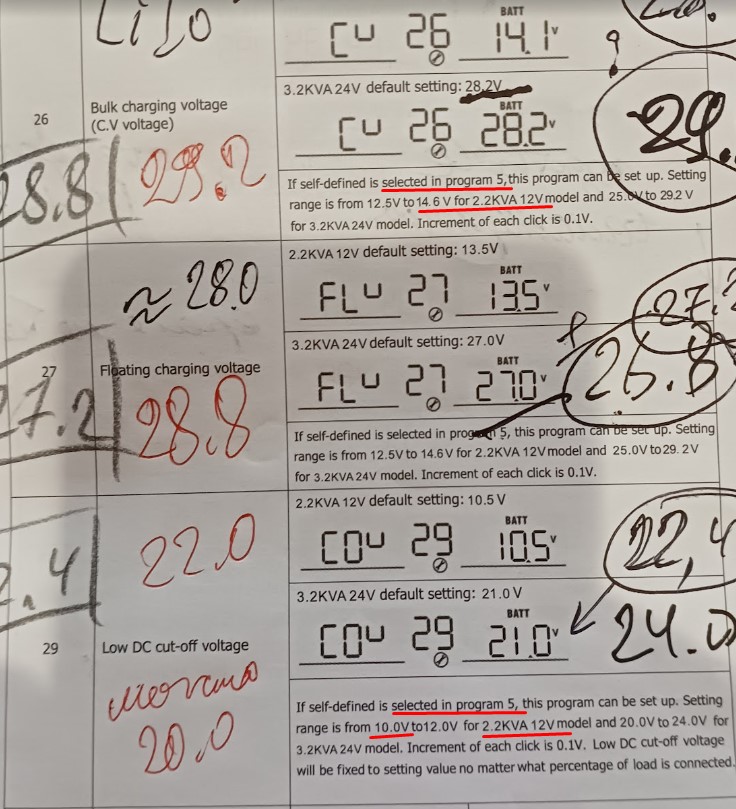 BATT
CU 26 14.1v
3.2KVA 24V default setting: 28.2V
26
Bulk charging voltage
(C.V voltage)
BATT
CU 26 28.2v
29.
28.8
29.2
If self-defined is selected in program 5, this program can be set up. Setting
range is from 12.5V to 14.6 V for 2.2KVA 12V model and 25.0V to 29.2 V
for 3.2KVA 24V model. Increment of each click is 0.1V.
2.2KVA 12V default setting: 13.5V
≈ 28.0
BATT
FLU 27 13.5v
27.2
3.2KVA 24V default setting: 27.0V
27
Floating charging voltage
BATT
FLU 27 27.0v
27.2
28.8
If self-defined is selected in program 5, this program can be set up. Setting
range is from 12.5V to 14.6V for 2.2KVA 12V model and 25.0V to 29. 2V
for 3.2KVA 24V model. Increment of each click is 0.1V.
2.2KVA 12V default setting: 10.5 V
22.0
BATT
COU 29 10.5v
22,4
2.4
3.2KVA 24V default setting: 21.0 V
BATT
COU 29 21.0v
24.0
29
Low DC cut-off voltage
20.0
If self-defined is selected in program 5, this program can be set up. Setting
range is from 10.0V to 12.0V for 2.2KVA 12V model and 20.0V to 24.0V for
3.2KVA 24V model. Increment of each click is 0.1V. Low DC cut-off voltage
will be fixed to setting value no matter what percentage of load is connected.